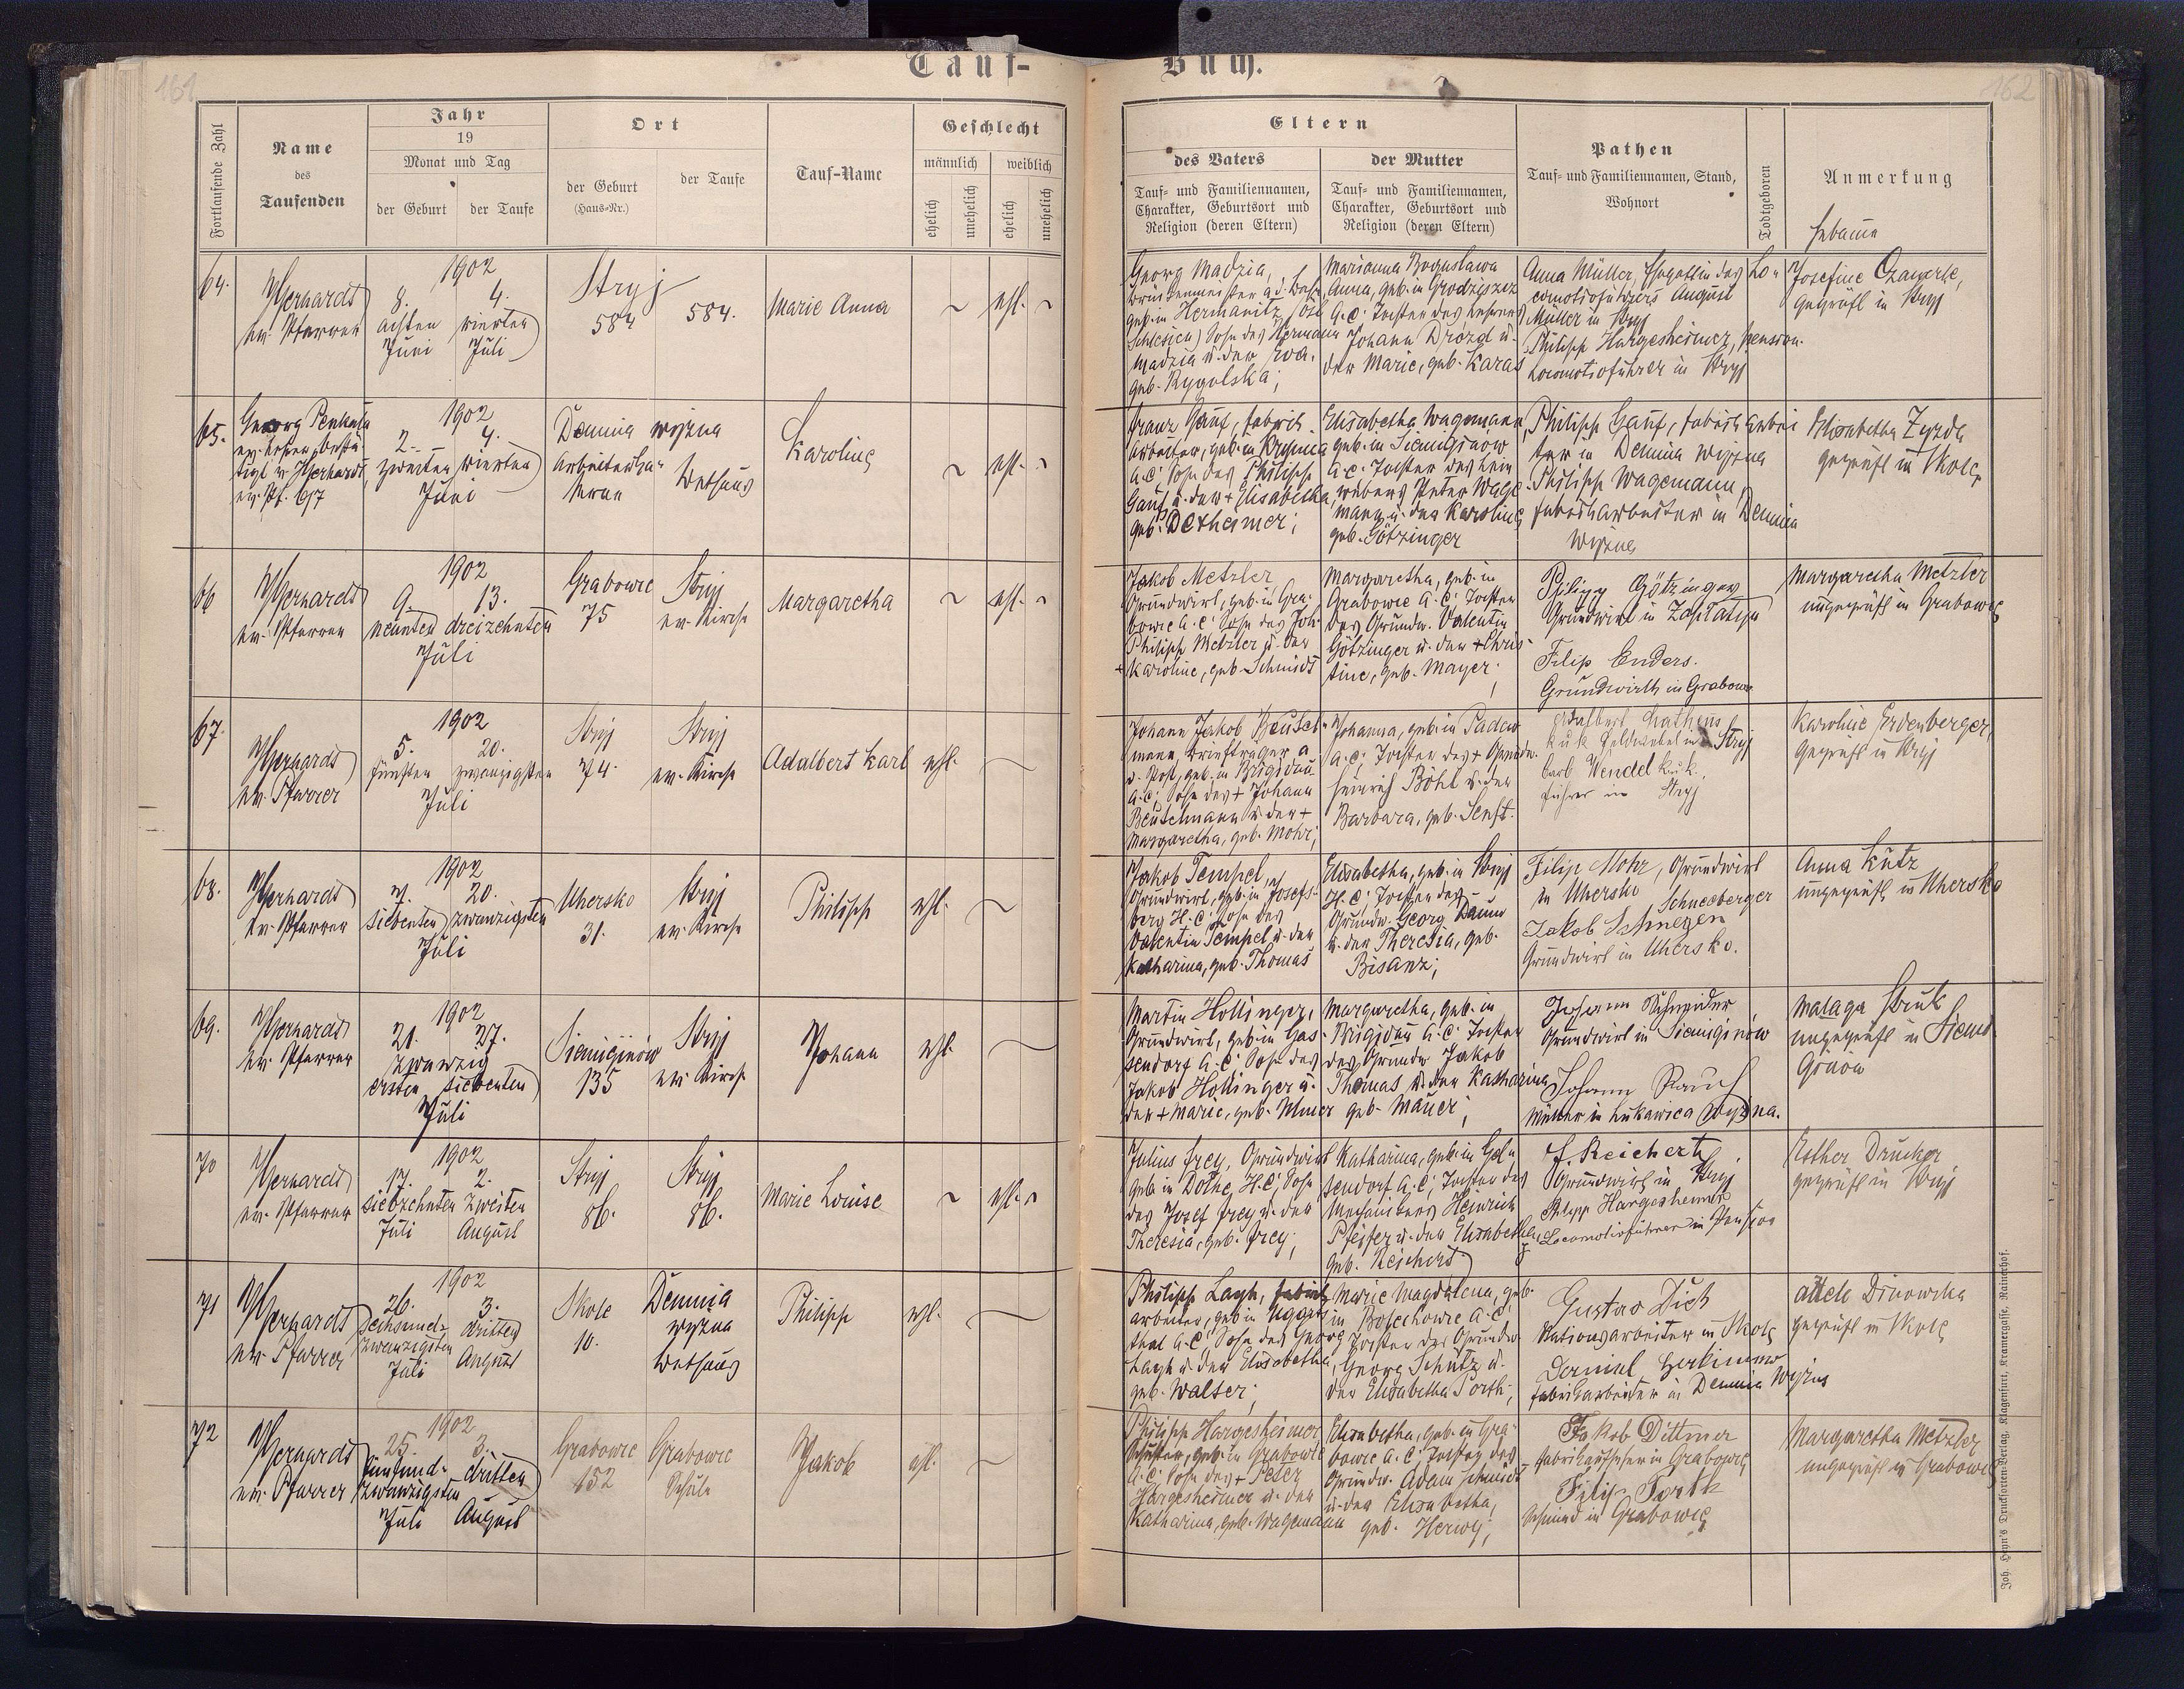 161
162
Tauf-Buch.
Fortlaufende Zahl
Name
des
Taufenden
Jahr
19
Monat und Tag
der Geburt
der Taufe
Ort
der Geburt
(Haus-Nr.)
der Taufe
Tauf-Name
Geschlecht
männlich
weiblich
ehelich
unehelich
ehelich
unehelich
Eltern
des Vaters
Tauf- und Familiennamen,
Charakter, Geburtsort und
Religion (deren Eltern)
der Mutter
Tauf- und Familiennamen,
Charakter, Geburtsort und
Religion (deren Eltern)
Pathen
Tauf- und Familiennamen, Stand,
Wohnort
Todtgeboren
Anmerkung
Hebamme
64.
ev. Pfarrer
1902
8. 4.
achten vierten
Juni Juli
Stryj
584
584.
Marie Anna
ehl.
Georg Madzia,
Brückenmeister a. d. Bahn,
geb. in Hermanitz (Öst.
Schlesien) Sohn des Hermann
Madzia u. der Eva,
geb. Rygolska;
Marianna Boguslawa
Anna, geb. in Grodzyszcz
A. C. Tochter des Lehrers
Johann Drozd u.
der Marie, geb. Karas
Anna Müller, Ehegattin des Lo-
comotivführers August
Müller in Stryj
Philipp Hargesheimer, pension.
Locomotivführer in Stryj
Josefine
geprüft in Stryj
65.
Georg
ev. Pf.
1902
2. 4.
zweiten vierten
Juni
Demnia wyżna
Arbeiterka-
serne
Bethaus
Karoline
ehl.
Franz Gauf, Fabriks-
arbeiter, geb. in
A. C. Sohn des Philipp
Gauf u. der + Elisabetha
geb. Dexheimer;
Elisabetha Wagemann,
geb. in Siemiginow
A. C. Tochter des
Peter Wage-
mann u. der Karoline
geb. Götzinger
Philipp Gauf, Fabriksarbei
ter in Demnia wyżna
Philipp Wagemann,
Fabriksarbeiter in Demnia
Wyżna
Elisabetha
geprüft in Skole
66
ev. Pfarrer
1902
9. 13.
neunten dreizehnten
Juli
Grabowce
75
Stryj
ev. Kirche
Margaretha
ehl.
Jakob Metzler
Grundwirt, geb. in Gra-
bowce A. C. Sohn des Joh.
Philipp Metzler u. der
+ Karoline, geb. Schmidt
Margaretha, geb. in
Grabowce A. C. Tochter
des Grundw. Valentin
Götzinger u. der + Chris-
tine, geb. Mayer;
Philipp Götzinger
Grundwirt in Zaplatyn
Filip Enders.
Grundwirth in Grabowce
Margaretha Metzler
ungeprüft in Grabowce
67.
ev. Pfarrer
1902
5. 20.
fünften zwanzigsten
Juli
Stryj
74.
Stryj
ev. Kirche
Adalbert Karl
ehl.
Johann Jakob Beutel-
mann, Briefträger a.
d. Post, geb. in Brigidau
A. C. Sohn des + Johann
Beutelmann u. der +
Margaretha, geb. Mohr;
Johanna, geb. in Padew
A. C. Tochter des + Grundw.
Heinrich Böhl u. der
Barbara, geb. Senft.
Adalbert Mathens
k. u. k. Feldwebel in Stryj
Carl Wendel k. u. k.
führer in Stryj
Karoline Erdenberger,
geprüft in Stryj
68.
ev. Pfarrer
1902
7. 20.
siebenten zwanzigsten
Juli
Uhersko
31.
Stryj
ev. Kirche
Philipp
ehl.
Jakob Tempel,
Grundwirt, geb. in Josefs-
berg H. C. Sohn des
Valentin Tempel u. der
Katharina, geb. Thomas
Elisabetha, geb. in Stryj
H. C. Tochter des
Grundw. Georg Daum
u. der Theresia, geb.
Bisanz;
Filip Mohr, Grundwirt
in Uhersko
Schneeberger
Jakob
Grundwirt in Uhersko.
Anna Kutz
ungeprüft in Uhersko
69.
ev. Pfarrer
1902
21. 27.
zwanzig
ersten siebenten
Juli
Siemiginów
135
Stryj
ev. Kirche
Johann
ehl.
Martin Hollinger,
Grundwirt, geb. in Gas-
sendorf A. C. Sohn des
Jakob Hollinger u.
der + Marie, geb. Ulmer
Margaretha, geb. in
Brigidau A. C. Tochter
des Grundw. Jakob
Thomas u. der Katharina
geb. Mauer;
Johann Schneider
Grundwirt in Siemiginów
Johann Rauch
Müller in Lukawica Wyżna.
Malaga Struk
ungeprüft in Siemi-
ginów
70
ev. Pfarrer
1902
17. 2.
siebzehnten zweiten
Juli August
Stryj
86.
Stryj
86.
Marie Louise
ehl.
Julius Frey, Grundwirt
geb. in Dolhe, H. C. Sohn
des Josef Frey u. der
Theresia, geb. Frey;
Katharina, geb. in Gelsendorf A. C. Tochter des
Heinrich
Pfeifer u. der Elisabetha,
geb. Reichert
J. Reichert,
Grundwirt in Stryj
Philipp Hargesheimer
Locomotivführer in Pension
Esther Drucker
geprüft in Stryj
71
ev. Pfarrer
1902
26. 3.
sechsund- dritten
zwanzigsten
Juli August
Skole
10.
Demnia
wyżna
Bethaus
Philipp
ehl.
Philipp Layh, Fabriks-
arbeiter, geb. in Ugarts-
thal A. C. Sohn des Georg
Layh u. der Elisabetha,
geb. Walter;
Marie Magdalena, geb.
in Bolechowce A. C.
Tochter des Grundw.
Georg Schütz u.
der Elisabetha Porth;
Gustav Dick
Stationsarbeiter in Skole
Daniel
Fabriksarbeiter in Demnia Wyżna
Dinowska
geprüft in Skole
72
ev. Pfarrer
1902
25. 3.
fünfund- dritten
zwanzigsten
Juli August
Grabowce
152
Grabowce
Schule
Jakob
ehl.
Philipp Hargesheimer,
Schuster, geb. in Grabowce
A. C. Sohn des + Peter
Hargesheimer u. der
Katharina, geb. Wagemann
Elisabetha, geb. in Gra-
bowce A. C. Tochter des
Grundw. Adam Schmidt
u. der Elisabetha,
geb. Herwy;
Jakob Dittmer
in Grabowce
Filip Porth
Schmied in Grabowce
Margaretha Metzler
ungeprüft in Grabowce
Joh. Heyn's Drucksorten-Verlag, Klagenfurt, Kramergasse, Rainerhof.